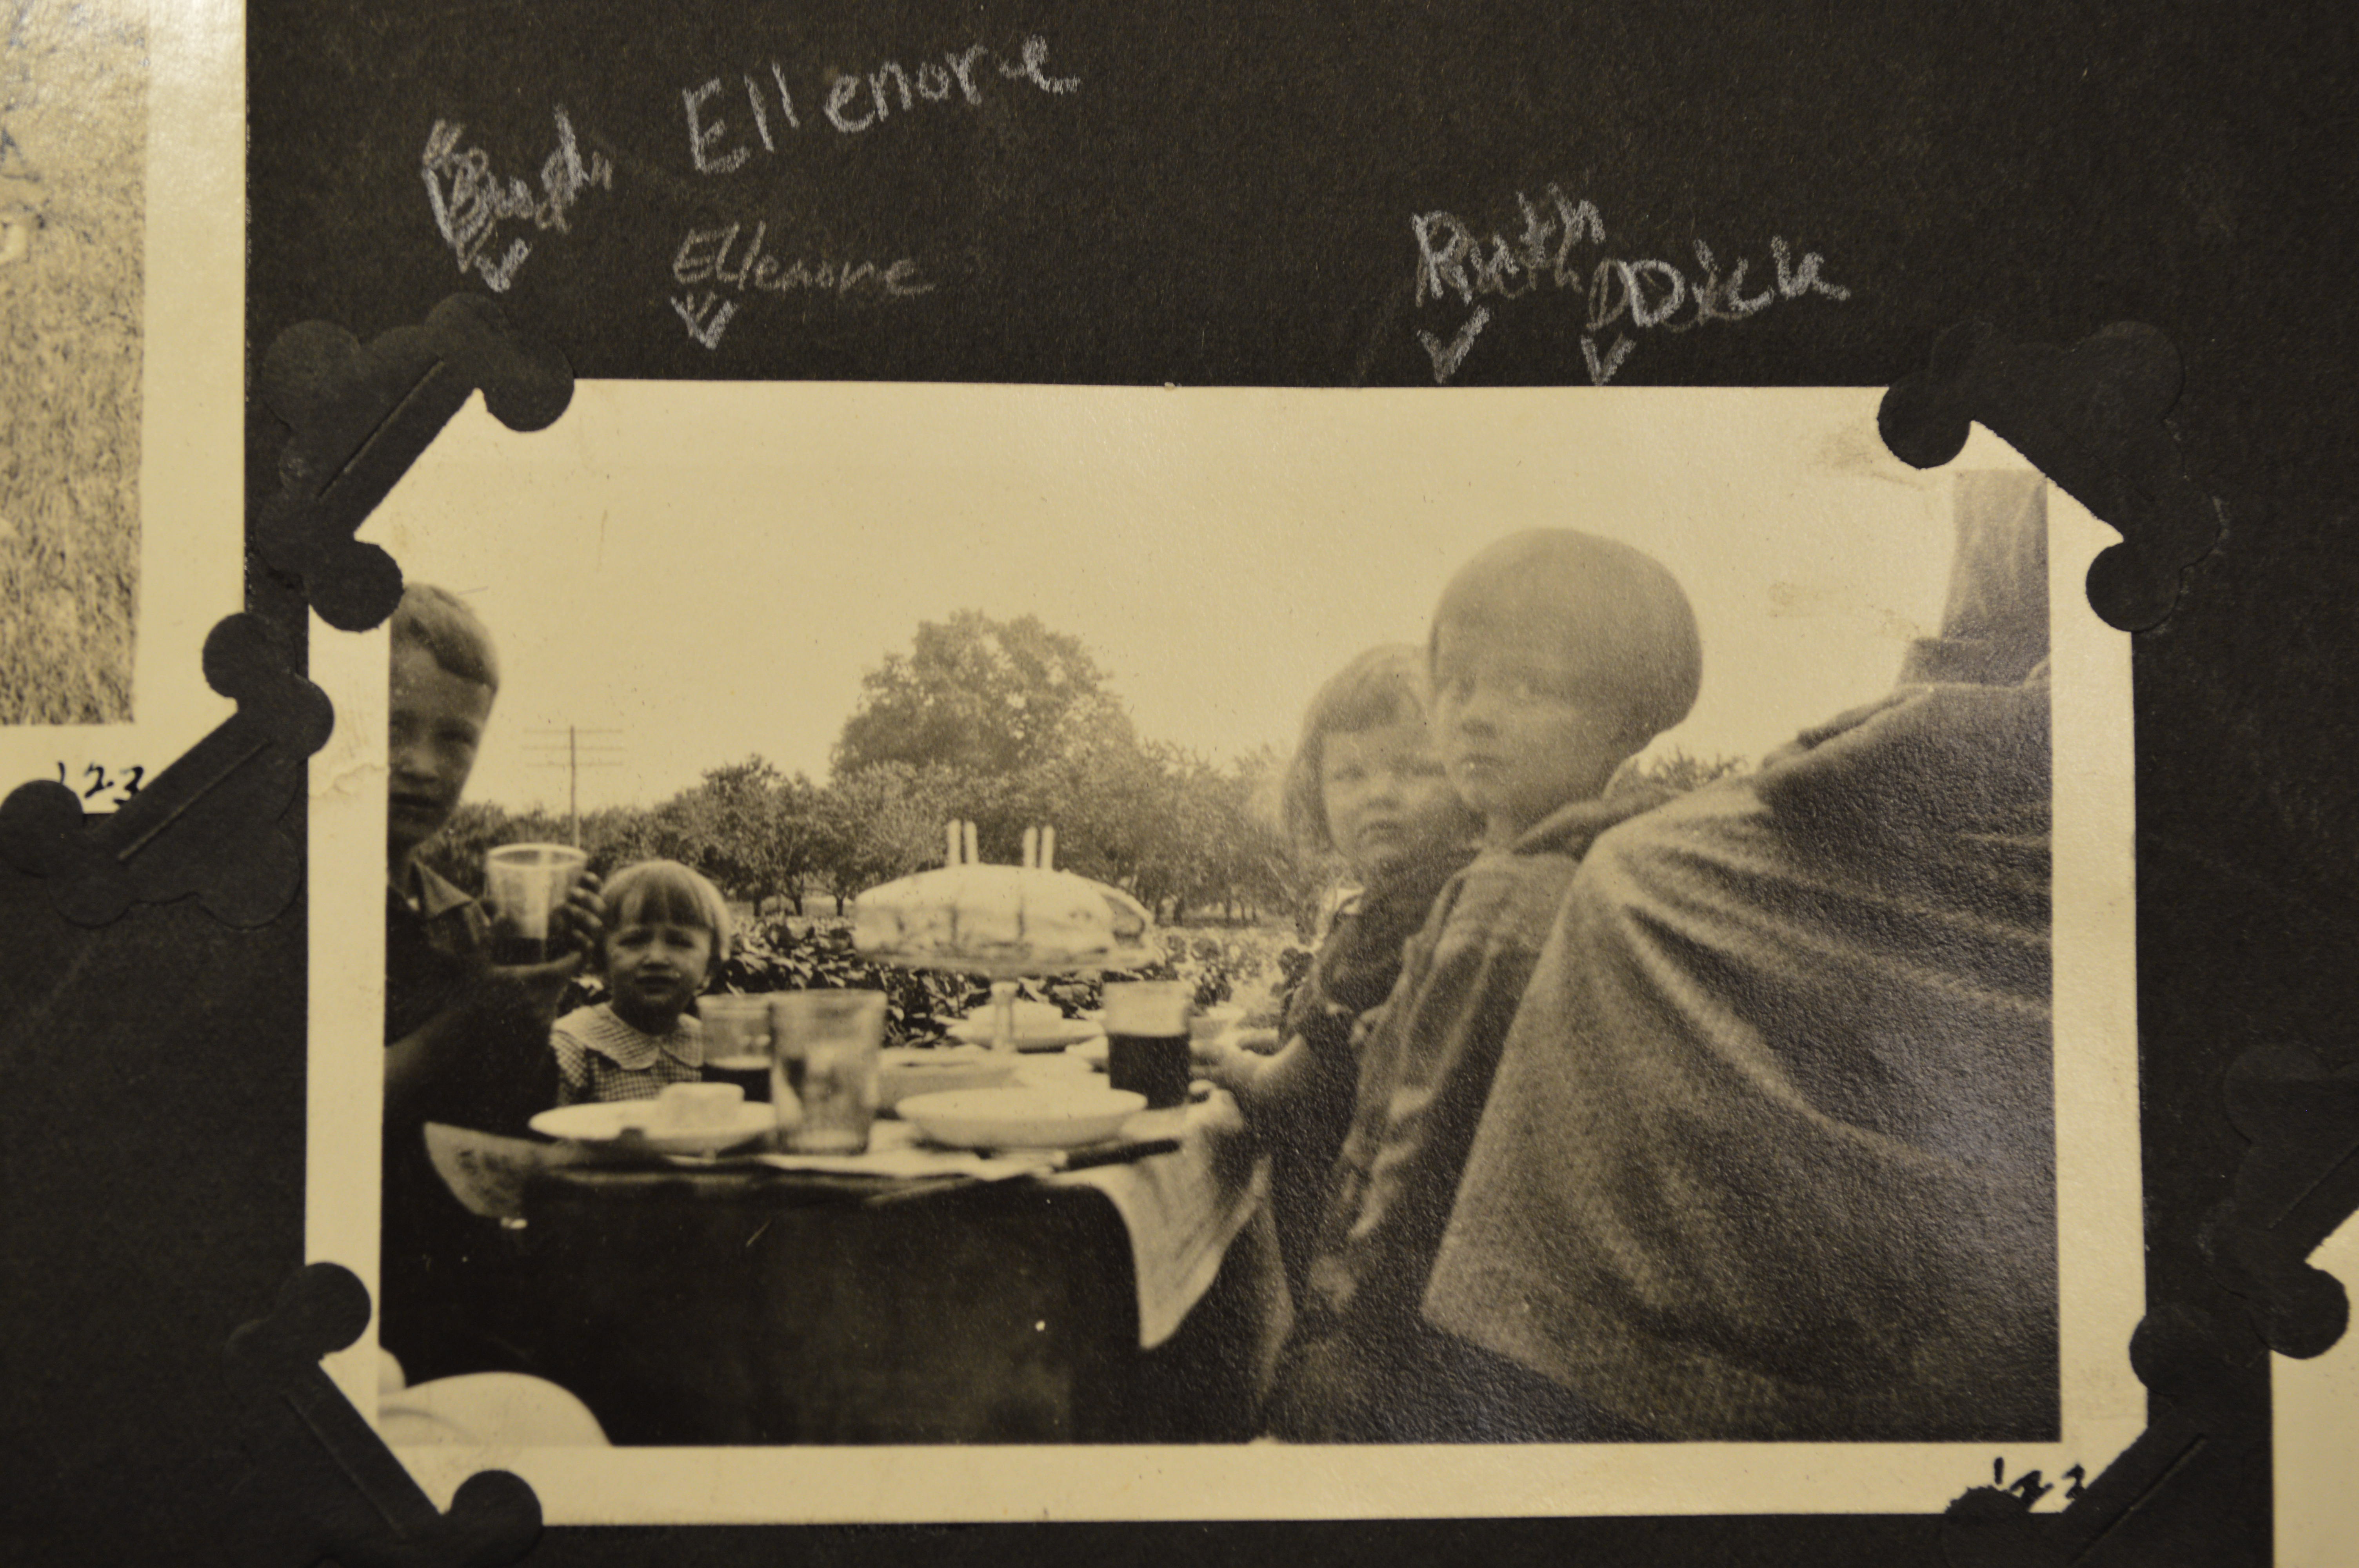 Bud Ellenore
Ellenore
Ruth Dick
'23
'23